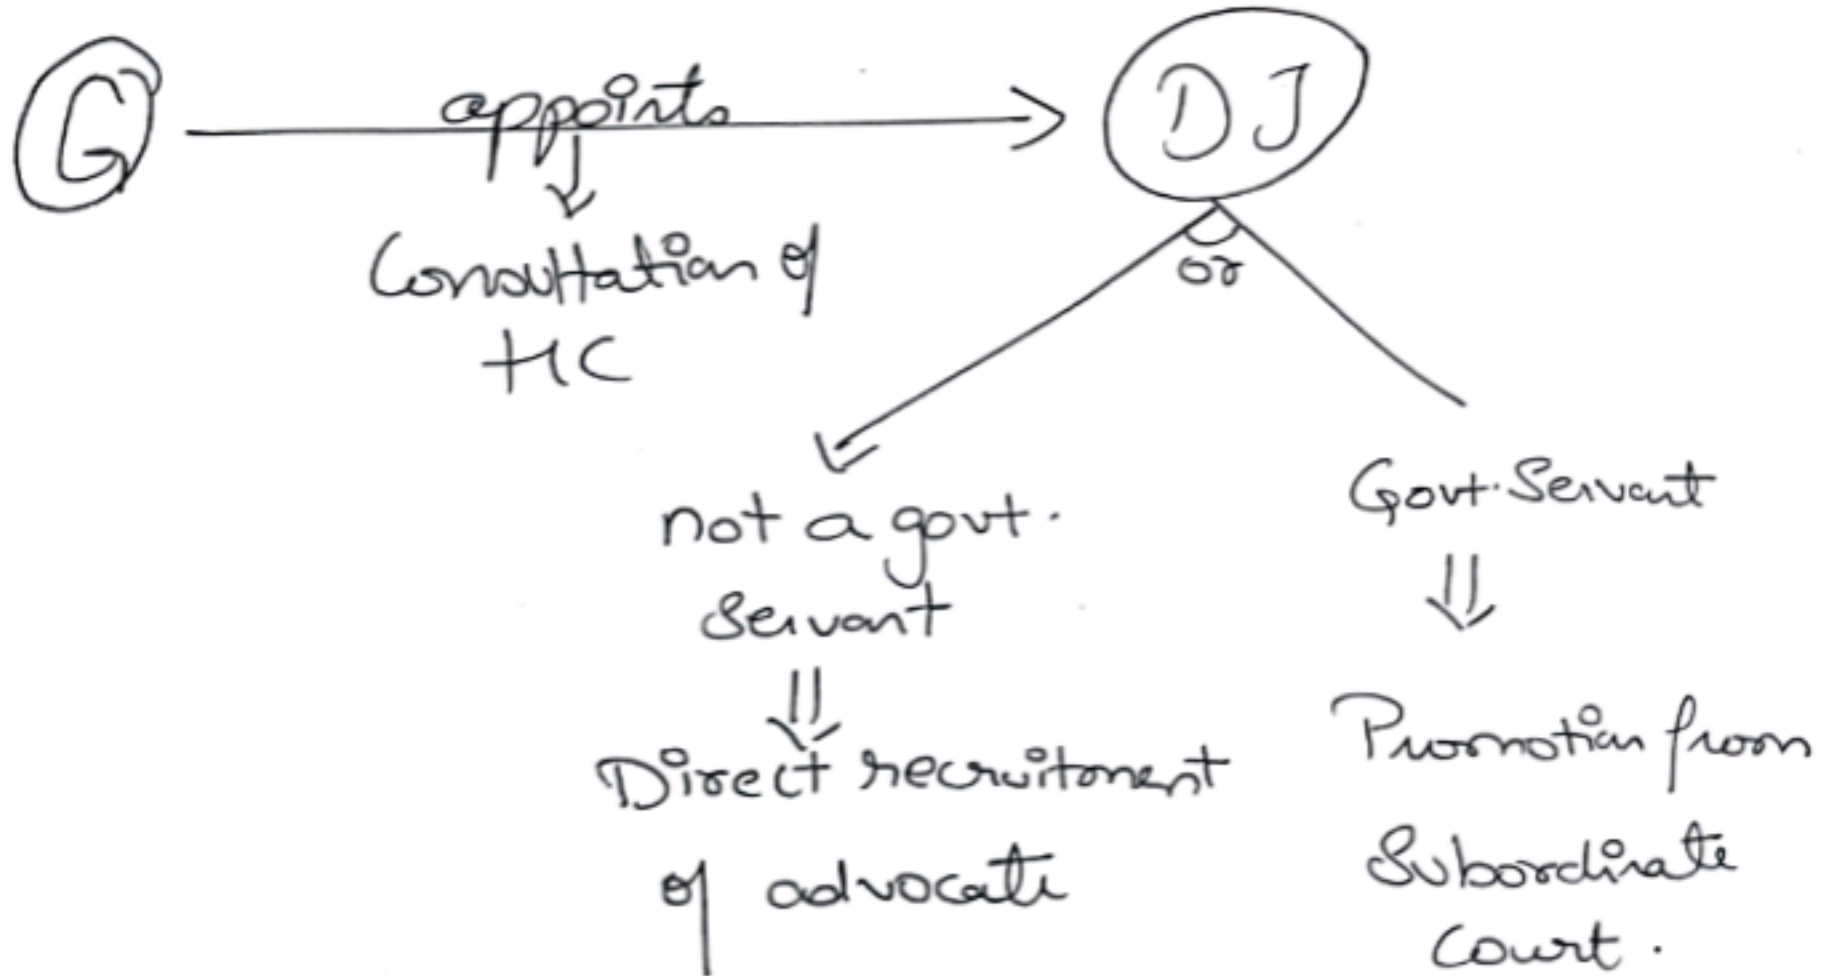 G
appoints
DJ
Consultation of
HC
or
not a govt.
servant
Govt. Servant
Direct recruitment
of advocate
Promotion from
Subordinate
Court.